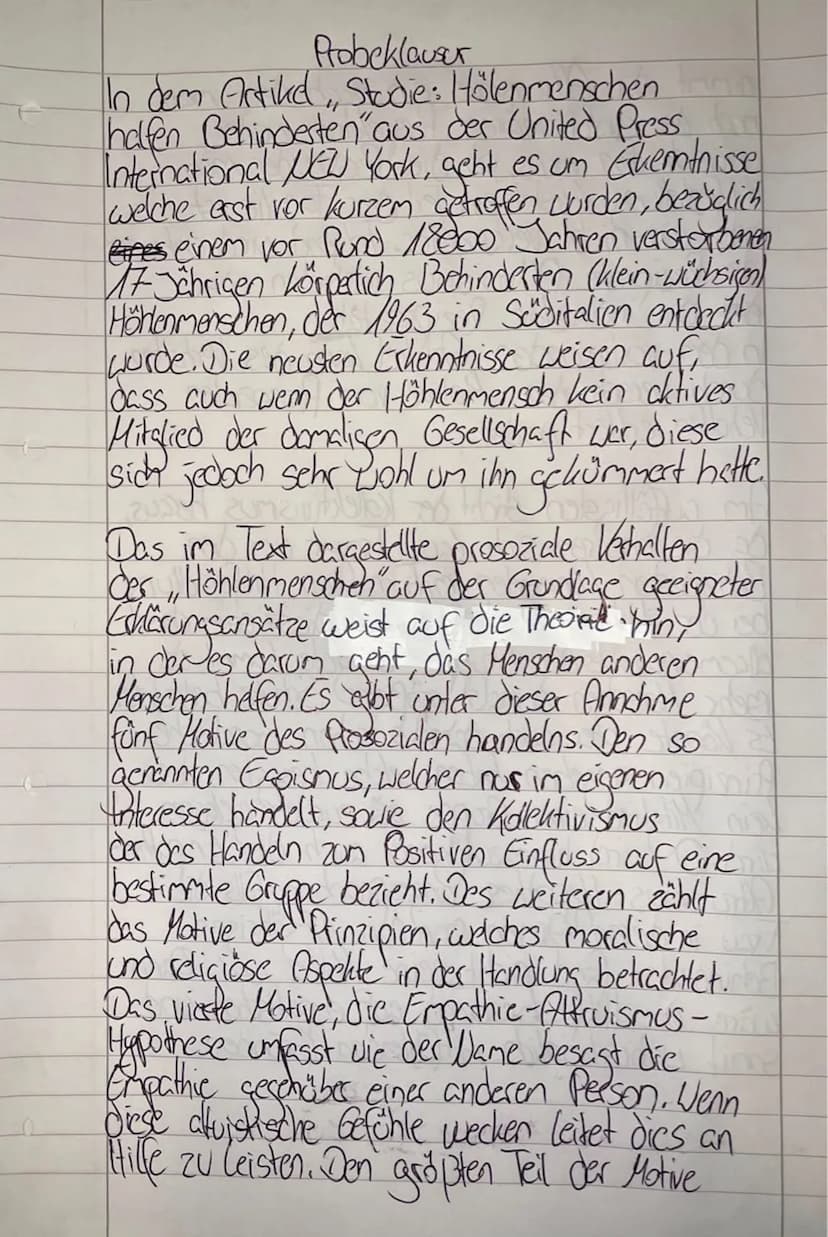 Probeklausur
In dem Artikel „Studie: Hölenmenschen
halfen Behinderten" aus der United Press
International NEW York, geht es um Erkenntnisse
welche erst vor kurzem getroffen wurden, bezüglich
eines einem vor Rund 18000 Jahren verstorbenen
17-Jährigen körperlich Behinderten (klein-wüchsigen)
Höhlenmenschen, der 1963 in Süditalien entdeckt
wurde. Die neusten Erkenntnisse weisen auf,
dass auch wenn der Höhlenmensch kein aktives
Mitglied der damaligen Gesellschaft war, diese
sich jedoch sehr wohl um ihn gekümmert hatte.
Das im Text dargestellte prosoziale Verhalten
der „Höhlenmenschen" auf der Grundlage geeigneter
Erklärungsansätze weist auf die Theorie hin,
in der es darum geht, das Menschen anderen
Menschen helfen. Es gibt unter dieser Annahme
fünf Motive des Prosozialen handelns. Den so
genannten Egoismus, welcher nur im eigenen
Interesse handelt, sowie den Kollektivismus
der das Handeln zum Positiven Einfluss auf eine
bestimmte Gruppe bezieht. Des weiteren zählt
das Motive der Prinzipien, welches moralische
und religiöse Aspekte in der Handlung betrachtet.
Das vierte Motive, die Empathie-Altruismus-
Hypothese umfasst wie der Name besagt die
Empathie gegenüber einer anderen Person. Wenn
diese altruistische Gefühle wecken leitet dies an
Hilfe zu leisten. Den größten Teil der Motive